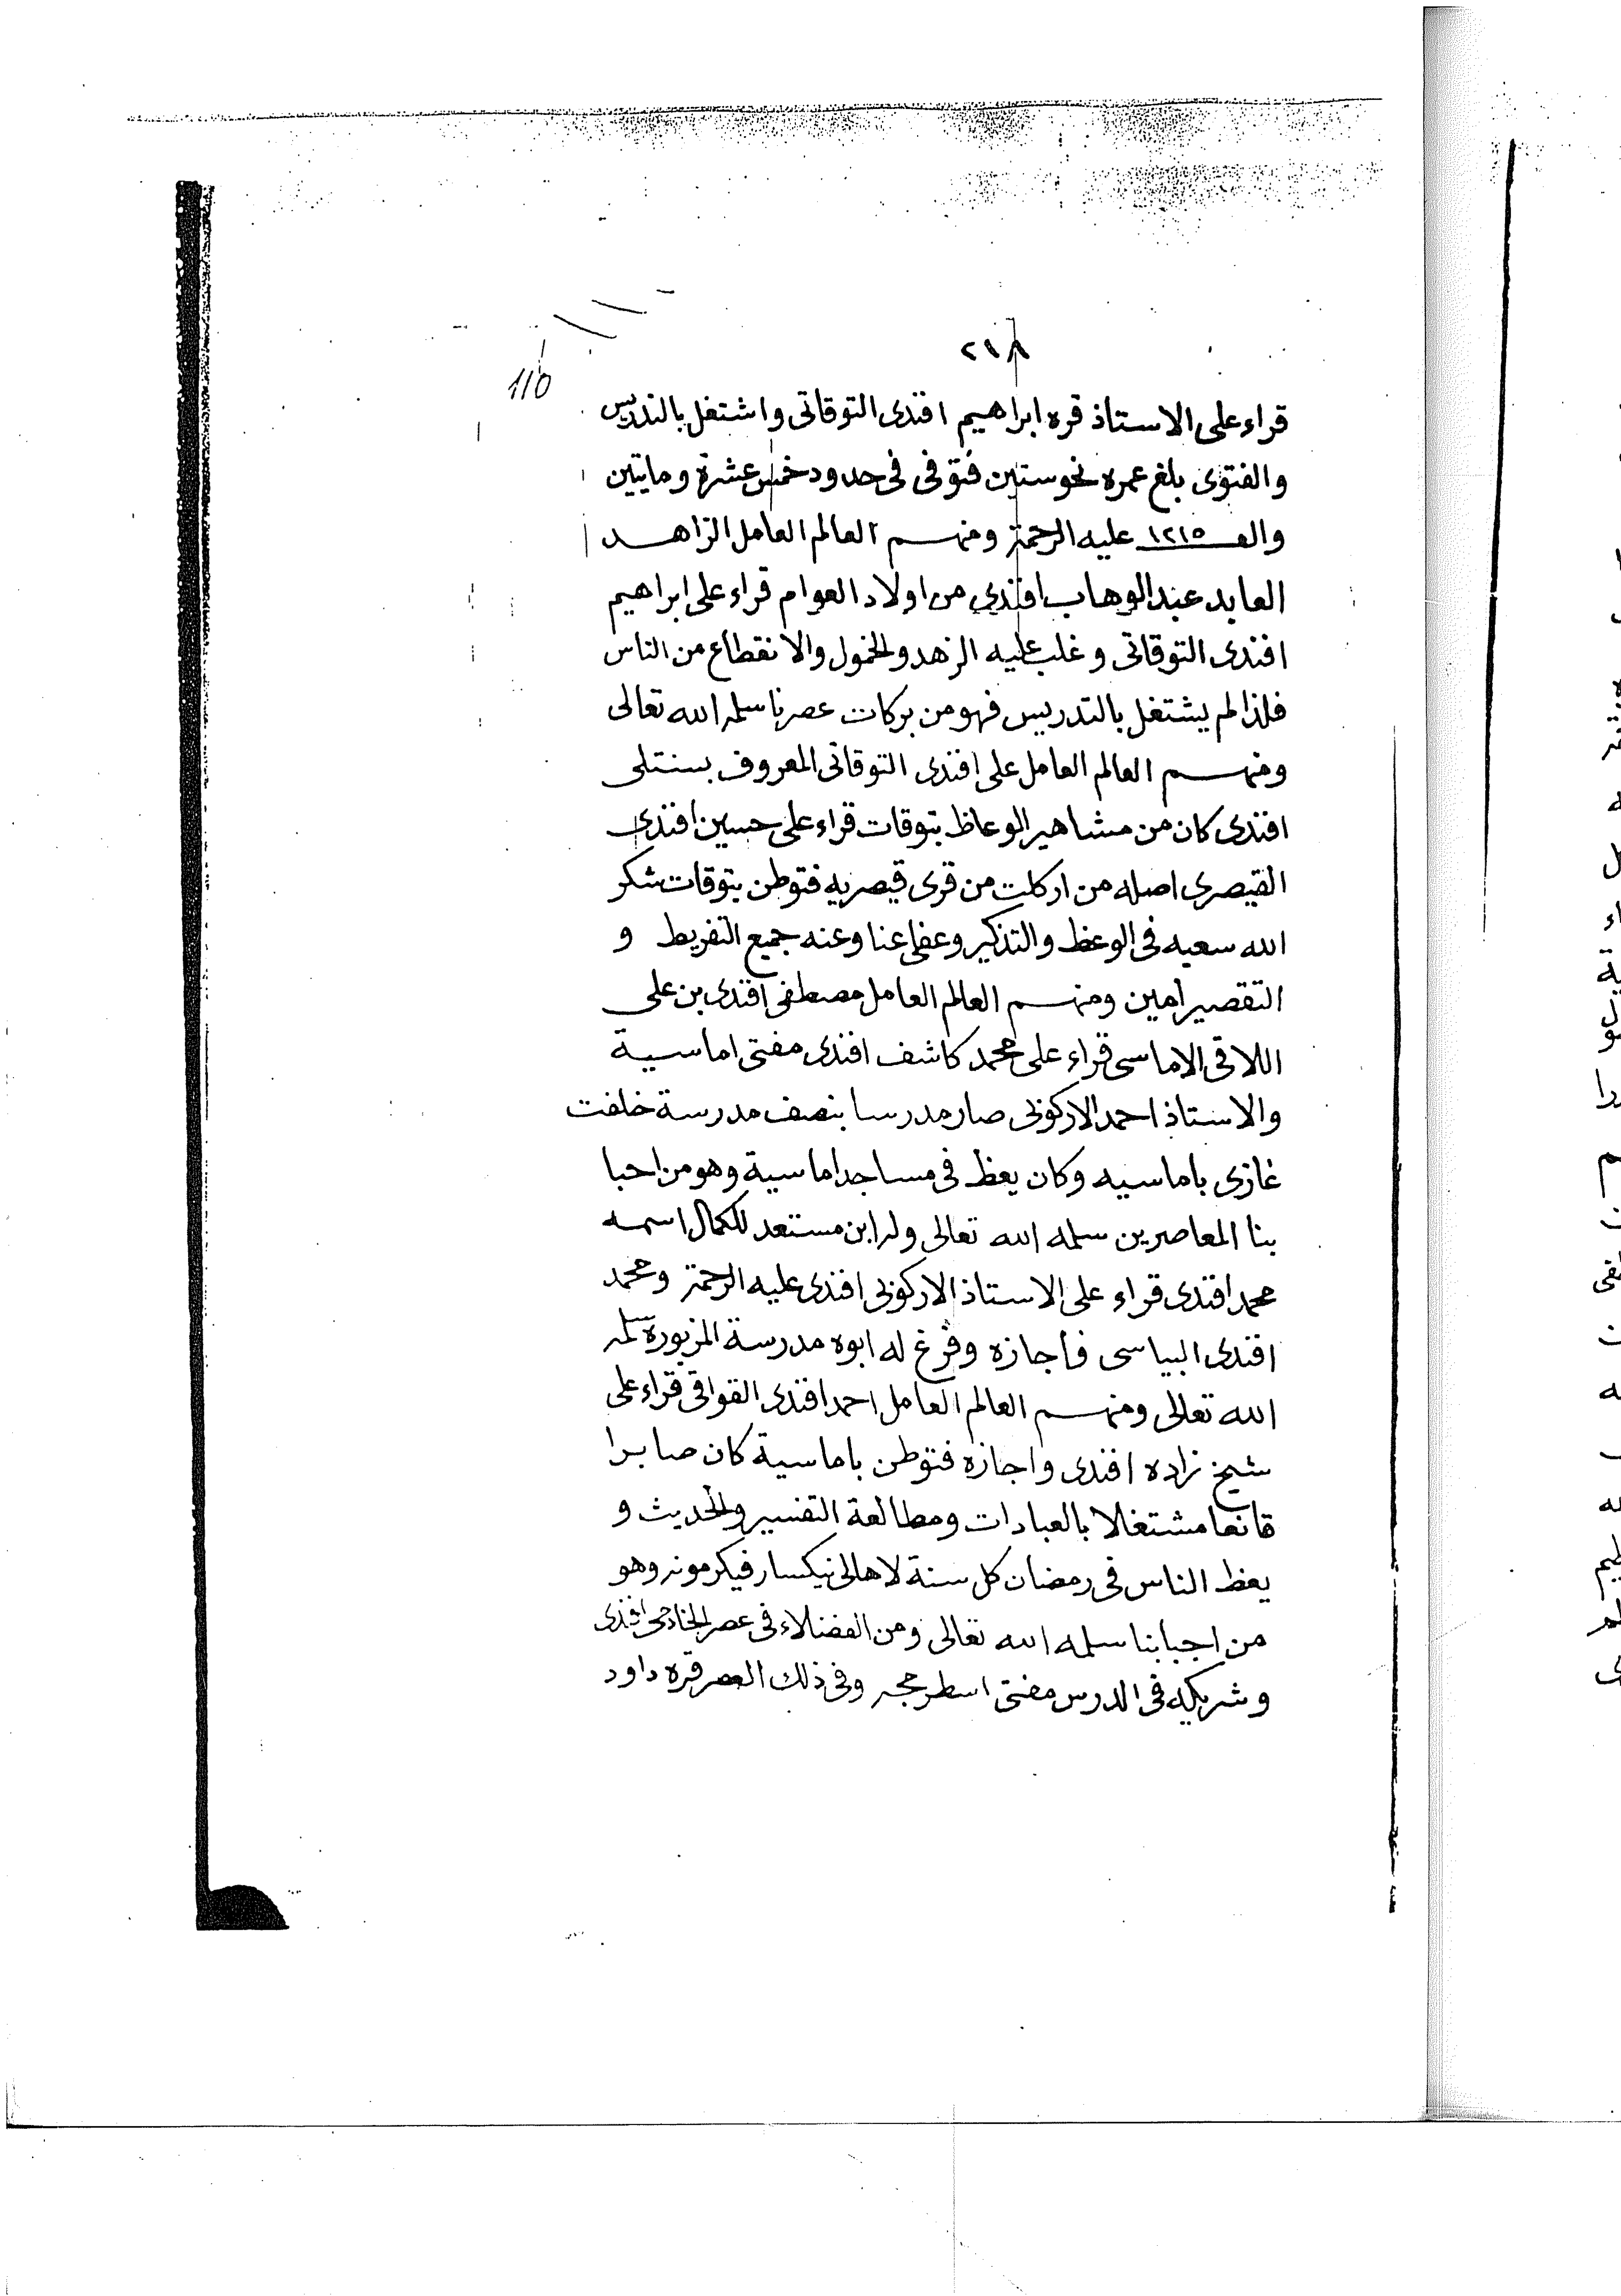 ٢١٨
116
قراء على الاستاذ قره ابراهيم افندى التوقاتى واشتغل بالتدريس
والفتوى بلغ عمره نحو ستين فتوفى فى حدود خمس عشرة ومايتين
والف ١٢١٥ عليه الرحمة ومنهم العالم العامل الزاهد
العابد عبد الوهاب افندي من اولاد العوام قراء على ابراهيم
افندى التوقاتى وغلب عليه الزهد والخمول والانقطاع من الناس
فلذا لم يشتغل بالتدريس فهو من بركات عصرنا سلمه الله تعالى
ومنهم العالم العامل على افندى التوقاتى المعروف بسنتلى
افندى كان من مشاهير الوعاظ بتوقات قراء على حسين افندى
القيصرى اصله من اركلت من قرى قيصريه فتوطن بتوقات شكر
الله سعيه فى الوعظ والتذكير وعفى عنا وعنه جميع التفريط و
التقصير امين ومنهم العالم العامل مصطفى افندى بن على
اللاقى الاماسى قراء على محمد كاشف افندى مفتى اماسية
والاستاذ احمد الاركوبى صار مدرسا بنصف مدرسة خلفت
غازى باماسيه وكان يعظ فى مساجد اماسية وهو من احبا
بنا المعاصرين سلمه الله تعالى وله ابن مستعد للكمال اسمه
محمد افندى قراء على الاستاذ الاركوبى افندى عليه الرحمة ومحمد
افندى البياسى فأجازه وفرغ له ابوه مدرسة المزبورة سلمه
الله تعالى ومنهم العالم العامل احمد افندى القواقى قراء على
شيخ زاده افندى واجازه فتوطن باماسية كان صابرا
قانعا مشتغلا بالعبادات ومطالعة التفسير والحديث و
يعظ الناس فى رمضان كل سنة لاهالى نيكسار فيكرمونه وهو
من احبابنا سلمه الله تعالى ومن الفضلاء فى عصر الخادمى افندى
وشريكه فى الدرس مفتى اسطرجه وفى ذلك العصر قره داود